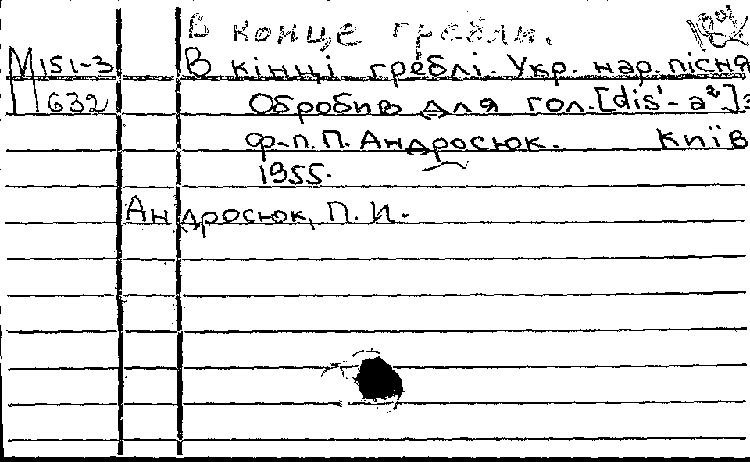 В конце гребли.
М 151-3 В кінці греблі. Укр. нар. пісня
632 Обробив для гол. [dis'-a²] з
ф-п. П. Андросюк. Київ
1955.
Андросюк, П. И.